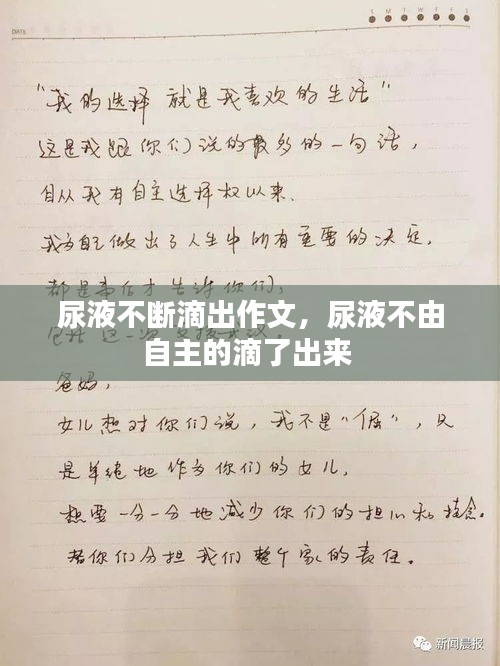 DATE
M T W T F S S
"我的选择 就是我喜欢的生活"
这是我跟你们说的最多的一句话，
自从我有自主选择权以来、
我为自己做出了人生中所有重要的决定，
都是事后才告诉你们，
尿液不断滴出作文，尿液不由
自主的滴了出来
爸妈，
女儿想对你们说，我不是"倔"，只
是单纯地作为你们的女儿，
想要一分一分地减少你们的担心和挂念。
替你们分担我们整个家的责任。
新闻晨报